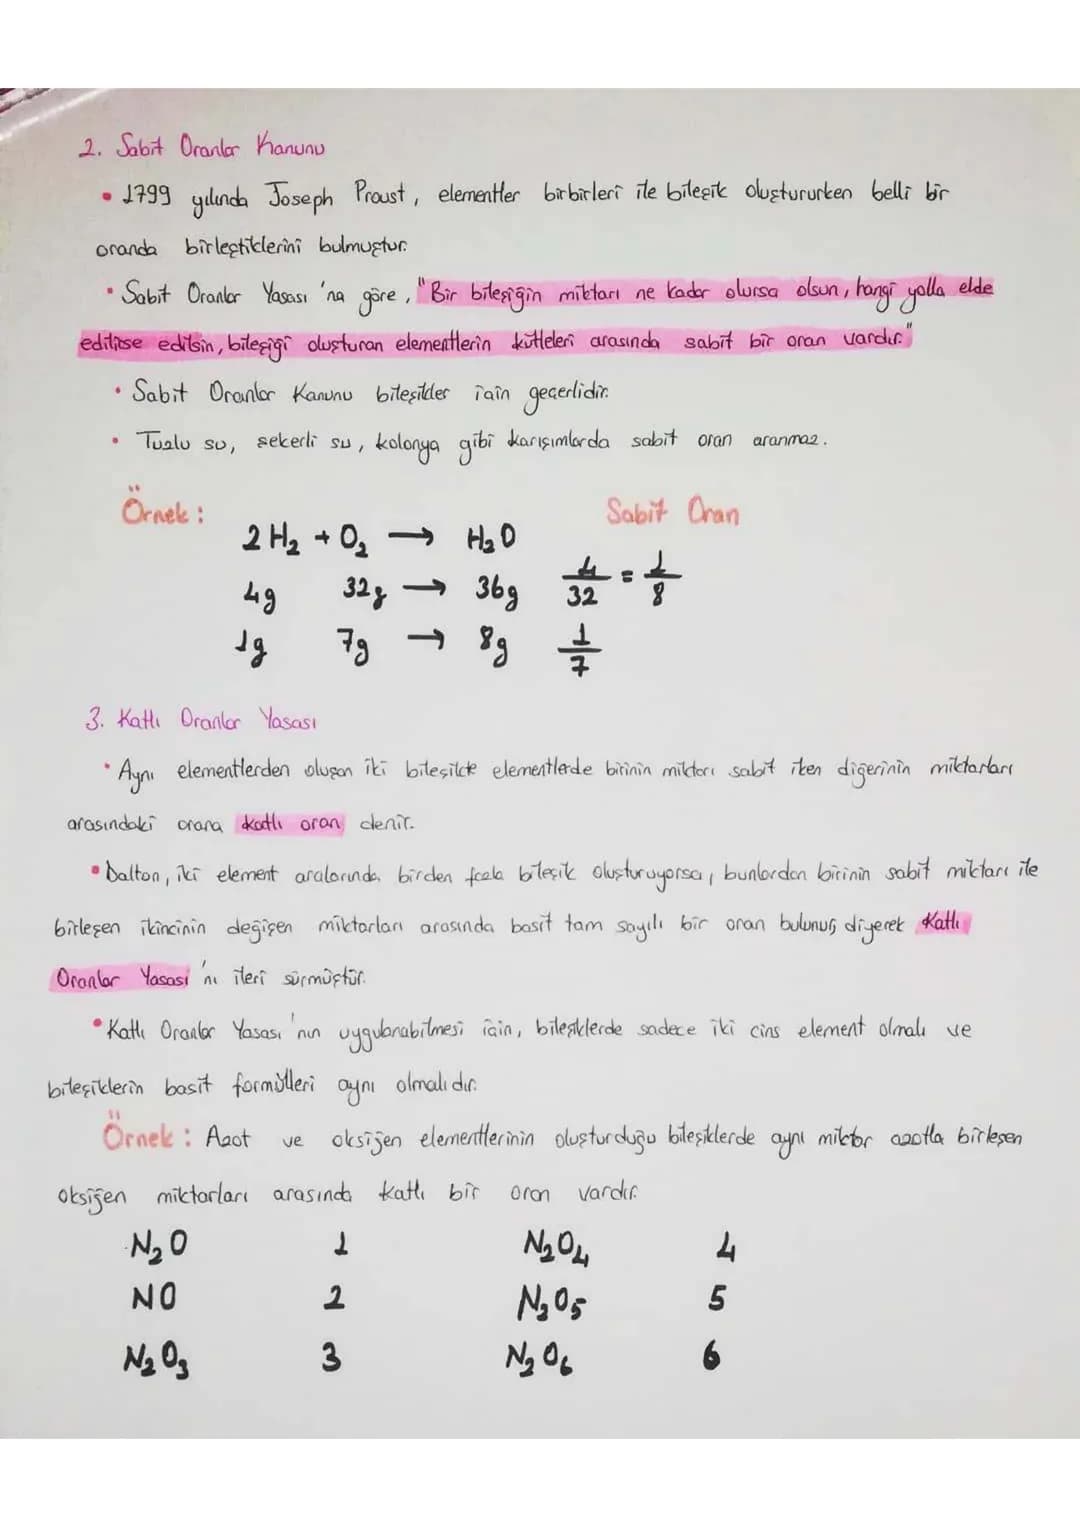 2. Sabit Oranlar Kanunu
• 1799 yılında Joseph Proust, elementler birbirleri ile bileşik oluştururken belli bir
oranda birleştiklerini bulmuştur.
• Sabit Oranlar Yasası 'na göre, "Bir bileşiğin miktarı ne kadar olursa olsun, hangi yolla elde
edilirse edilsin, bileşiği oluşturan elementlerin kütleleri arasında sabit bir oran vardır."
• Sabit Oranlar Kanunu bileşikler için geçerlidir.
• Tuzlu su, şekerli su, kolonya gibi karışımlarda sabit oran aranmaz.
Örnek: Sabit Oran
2H₂ + O₂ → H₂O
4g 32g → 36g 4/32 = 1/8
1g 7g → 8g 1/7
3. Katlı Oranlar Yasası
• Aynı elementlerden oluşan iki bileşikte elementlerde birinin miktarı sabit iken diğerinin miktarları
arasındaki orana katlı oran denir.
• Dalton, iki element aralarında birden fazla bileşik oluşturuyorsa, bunlardan birinin sabit miktarı ile
birleşen ikincinin değişen miktarları arasında basit tam sayılı bir oran bulunur diyerek Katlı
Oranlar Yasası 'nı ileri sürmüştür.
• Katlı Oranlar Yasası 'nın uygulanabilmesi için, bileşiklerde sadece iki cins element olmalı ve
bileşiklerin basit formülleri aynı olmalıdır.
Örnek: Azot ve oksijen elementlerinin oluşturduğu bileşiklerde aynı miktar azotla birleşen
oksijen miktarları arasında katlı bir oran vardır.
N₂O 1 N₂O₄ 4
NO 2 N₂O₅ 5
N₂O₃ 3 N₂O₆ 6